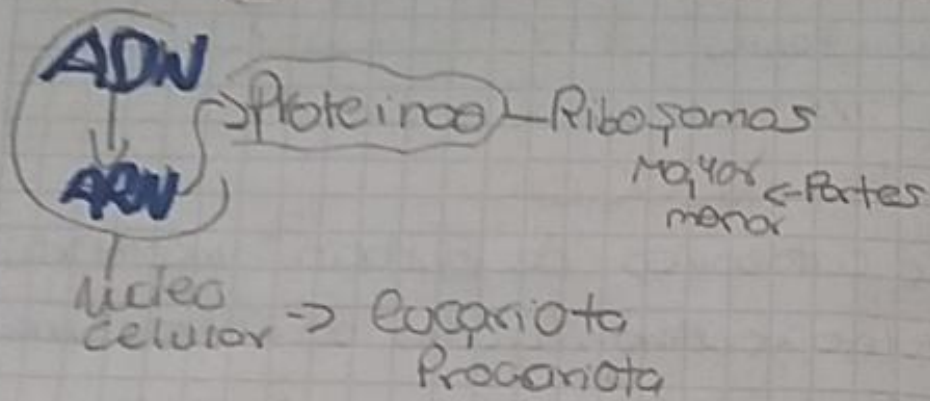 ADN
Proteinas Ribosomas
Mayor
Partes
menor
ARN
Núcleo
Celular -> Eucariota
Procariota